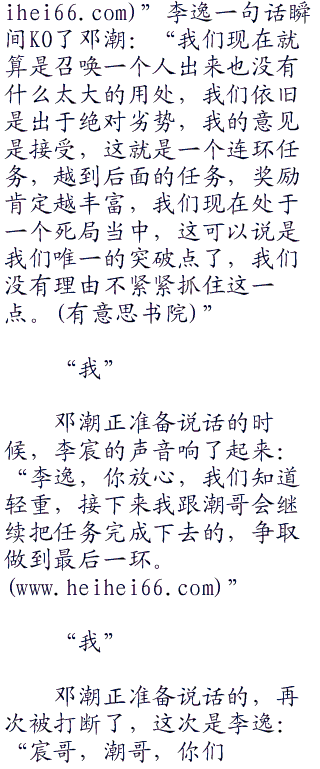 ihei66.com)”李逸一句话瞬
间KO了邓潮：“我们现在就
算是召唤一个人出来也没有
什么太大的用处，我们依旧
是出于绝对劣势，我的意见
是接受，这就是一个连环任
务，越到后面的任务，奖励
肯定越丰富，我们现在处于
一个死局当中，这可以说是
我们唯一的突破点了，我们
没有理由不紧紧抓住这一
点。(有意思书院)”
“我”
邓潮正准备说话的时
候，李宸的声音响了起来：
“李逸，你放心，我们知道
轻重，接下来我跟潮哥会继
续把任务完成下去的，争取
做到最后一环。
(www.heihei66.com)”
“我”
邓潮正准备说话的，再
次被打断了，这次是李逸：
“宸哥，潮哥，你们